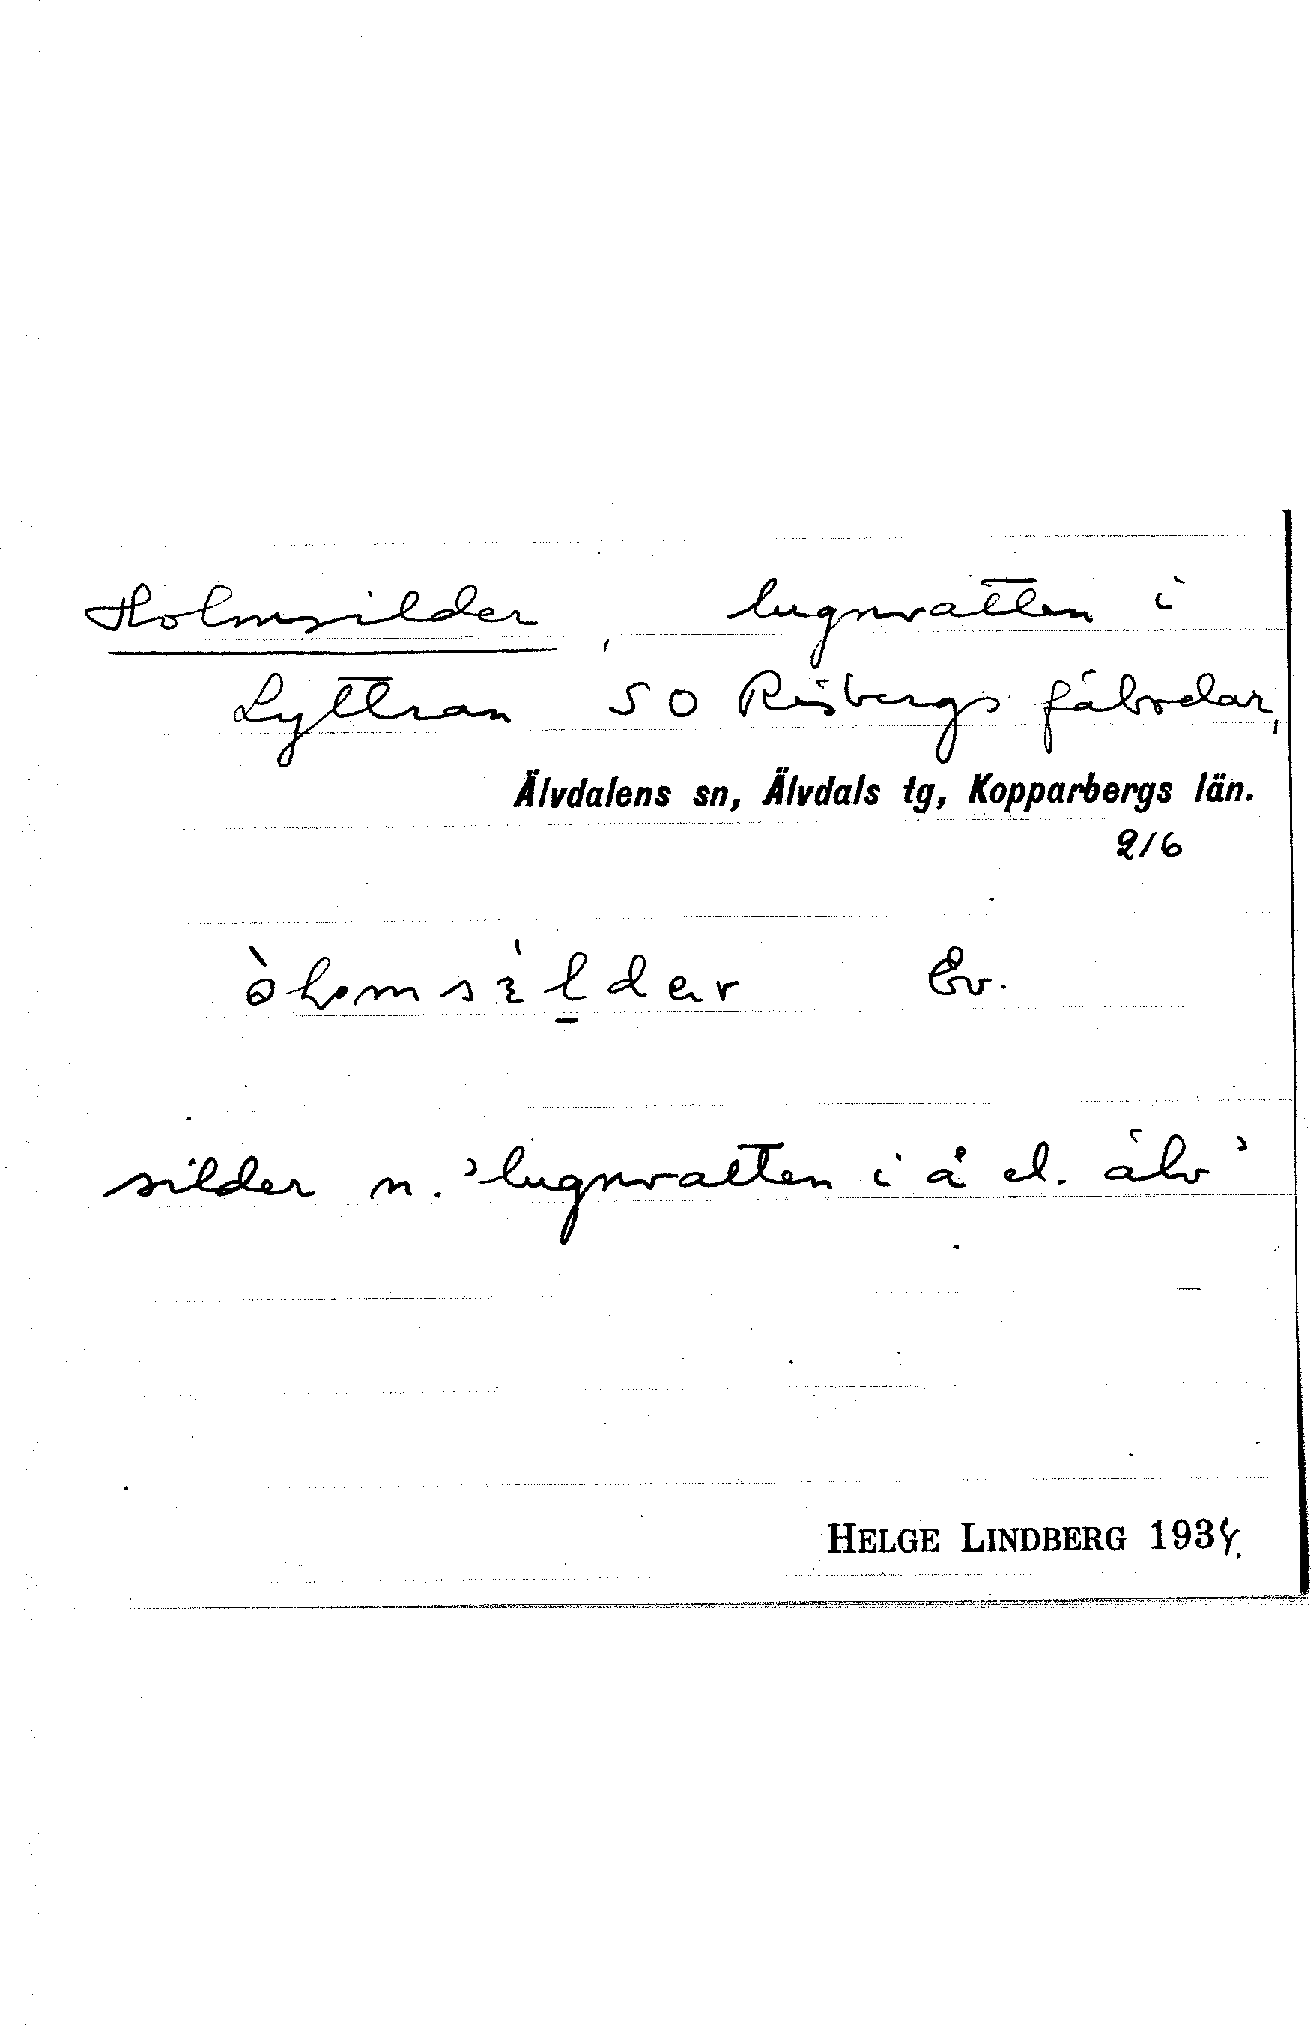 Holmsilder, lugnvatten i
Lyttran SO Risbergs fäbodar,
Älvdalens sn, Älvdals tg, Kopparbergs län.
216
Ev.
silder n. 'lugnvatten i å el. älv'
HELGE LINDBERG 1934.